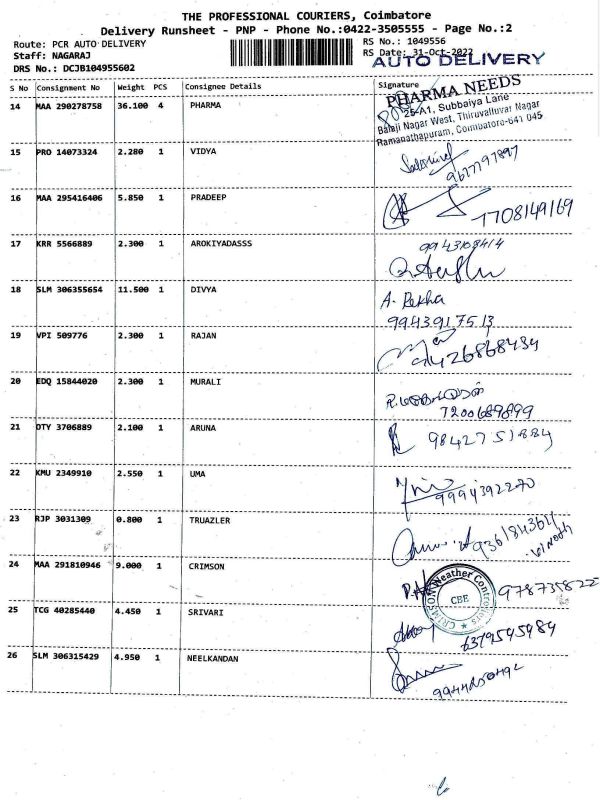 THE PROFESSIONAL COURIERS, Coimbatore
Delivery Runsheet - PNP - Phone No.:0422-3505555 - Page No.:2
Route: PCR AUTO DELIVERY
RS No.: 1049556
Staff: NAGARAJ
RS Date: 31-Oct-2022
AUTO DELIVERY
DRS No.: DCJB104955602
S No Consignment No Weight PCS Consignee Details Signature
14 MAA 290278758 36.100 4 PHARMA
PHARMA NEEDS
25-A1, Subbaiya Lane
Balaji Nagar West, Thiruvalluvar Nagar
Ramanathapuram, Coimbatore-641 045
15 PRO 14073324 2.280 1 VIDYA
9677797897
16 MAA 295416406 5.850 1 PRADEEP
7708149169
17 KRR 5566889 2.300 1 AROKIYADASSS
9943108414
18 SLM 306355654 11.500 1 DIVYA
A. Rekha
9943917513
19 VPI 509776 2.300 1 RAJAN
9426868434
20 EDQ 15844020 2.300 1 MURALI
7200689899
21 OTY 3706889 2.100 1 ARUNA
9842751884
22 KMU 2349910 2.550 1 UMA
9994392270
23 RJP 3031309 0.800 1 TRUAZLER
24 MAA 291810946 9.000 1 CRIMSON
CRIMSON Weather Controllers
CBE
978735822
25 TCG 40285440 4.450 1 SRIVARI
6379545984
26 SLM 306315429 4.950 1 NEELKANDAN